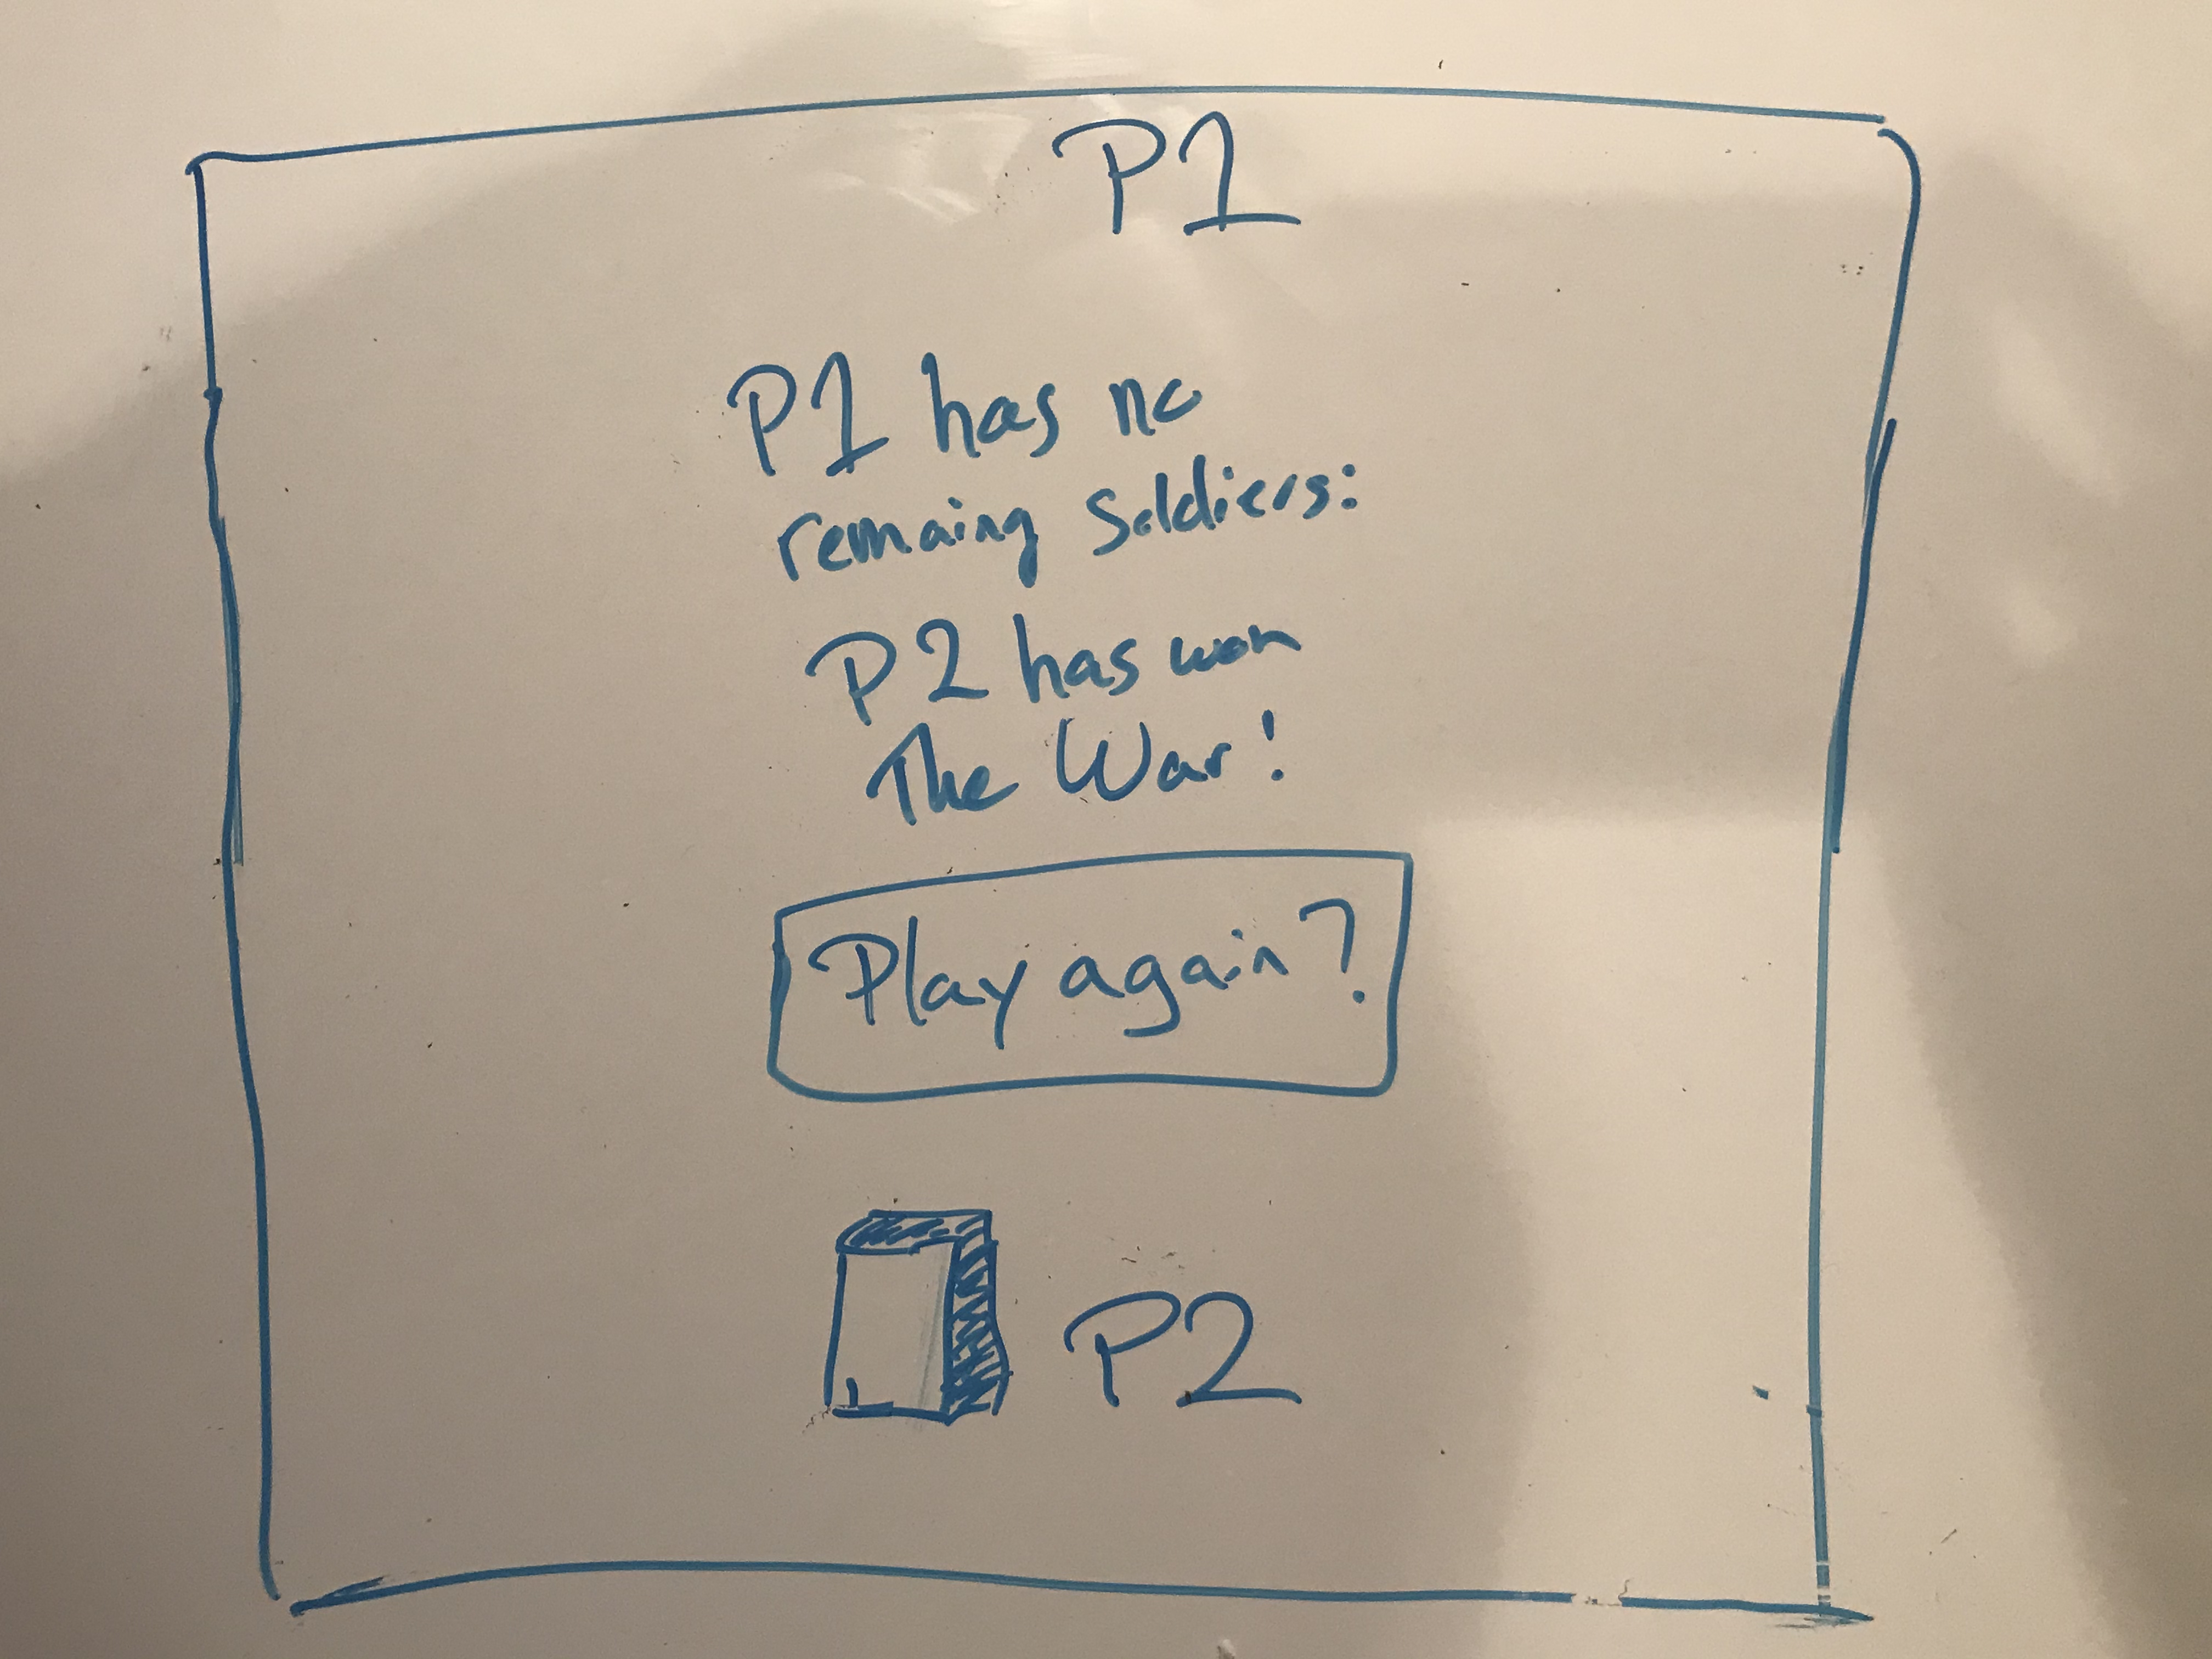 P1
P1 has no
remaing soldiers:
P2 has won
The War!
Play again?
P2